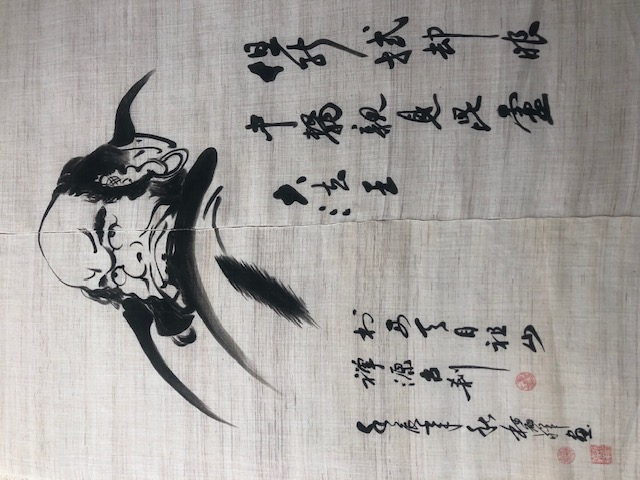 但能拭却眼
中翳親見毘盧
大法王
於西天目祖山
禅源古刹
壬辰年秋 画